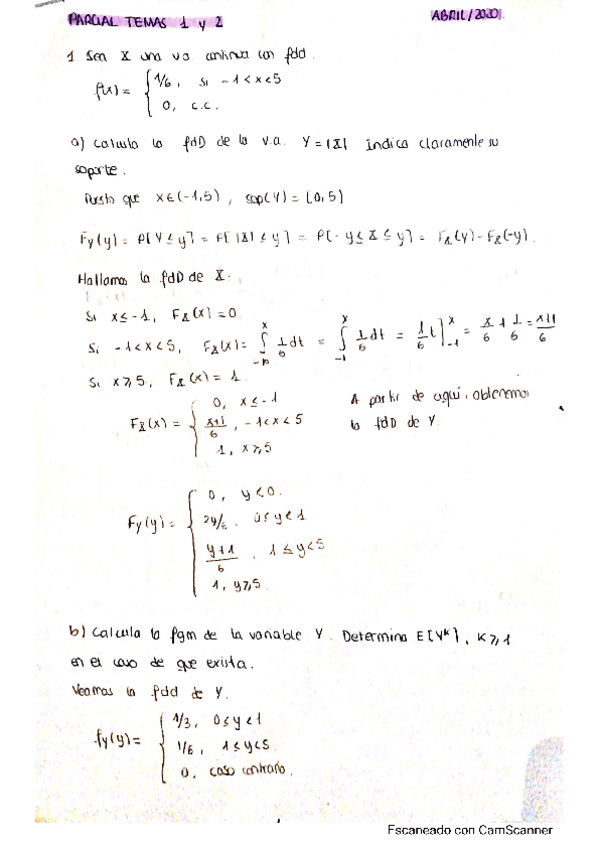 PARCIAL TEMAS 1 y 2 ABRIL/2020.
1 Sea X una va continua con fdd.
f(x) = { 1/6, si -1 < x < 5
0, c.c.
a) Calcula la fdD de la v.a. Y = |X| Indica claramente su
soporte.
Puesto que x∈(-1,5), sop(Y) = [0,5)
Fy(y) = P[Y ≤ y] = P[|X| ≤ y] = P[-y ≤ X ≤ y] = Fx(y) - Fx(-y).
Hallamos la fdD de X.
Si x ≤ -1, Fx(x) = 0
Si -1 < x < 5, Fx(x) = ∫_{-∞}^{x} 1/6 dt = ∫_{-1}^{x} 1/6 dt = 1/6 t]_{-1}^{x} = x/6 + 1/6 = x+1/6
Si x ≥ 5, Fx(x) = 1
Fx(x) = { 0, x ≤ -1
x+1/6, -1 < x < 5
1, x ≥ 5
A partir de aquí, obtenemos
la fdD de Y.
Fy(y) = { 0, y < 0.
2y/6, 0 ≤ y < 1
y+1/6, 1 ≤ y < 5
1, y ≥ 5.
b) Calcula la fgm de la variable Y. Determina E[Y^k], k ≥ 1
en el caso de que exista.
Veamos la fdd de Y.
fy(y) = { 1/3, 0 ≤ y < 1
1/6, 1 ≤ y < 5
0, caso contrario.
Escaneado con CamScanner